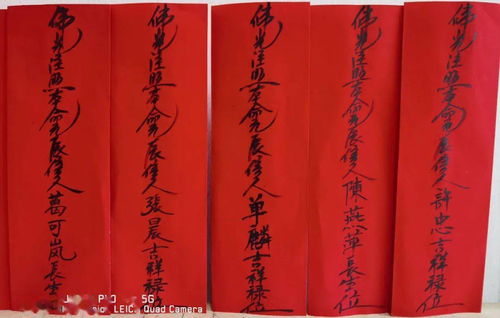 佛光注照本命元辰信人葛可嵐長生
佛光注照本命元辰信人張晨吉祥祿位
佛光注照本命元辰信人單麟吉祥祿位
佛光注照本命元辰信人陳燕萍長生位
佛光注照本命元辰信人許忠吉祥祿位
5G
Quad Camera